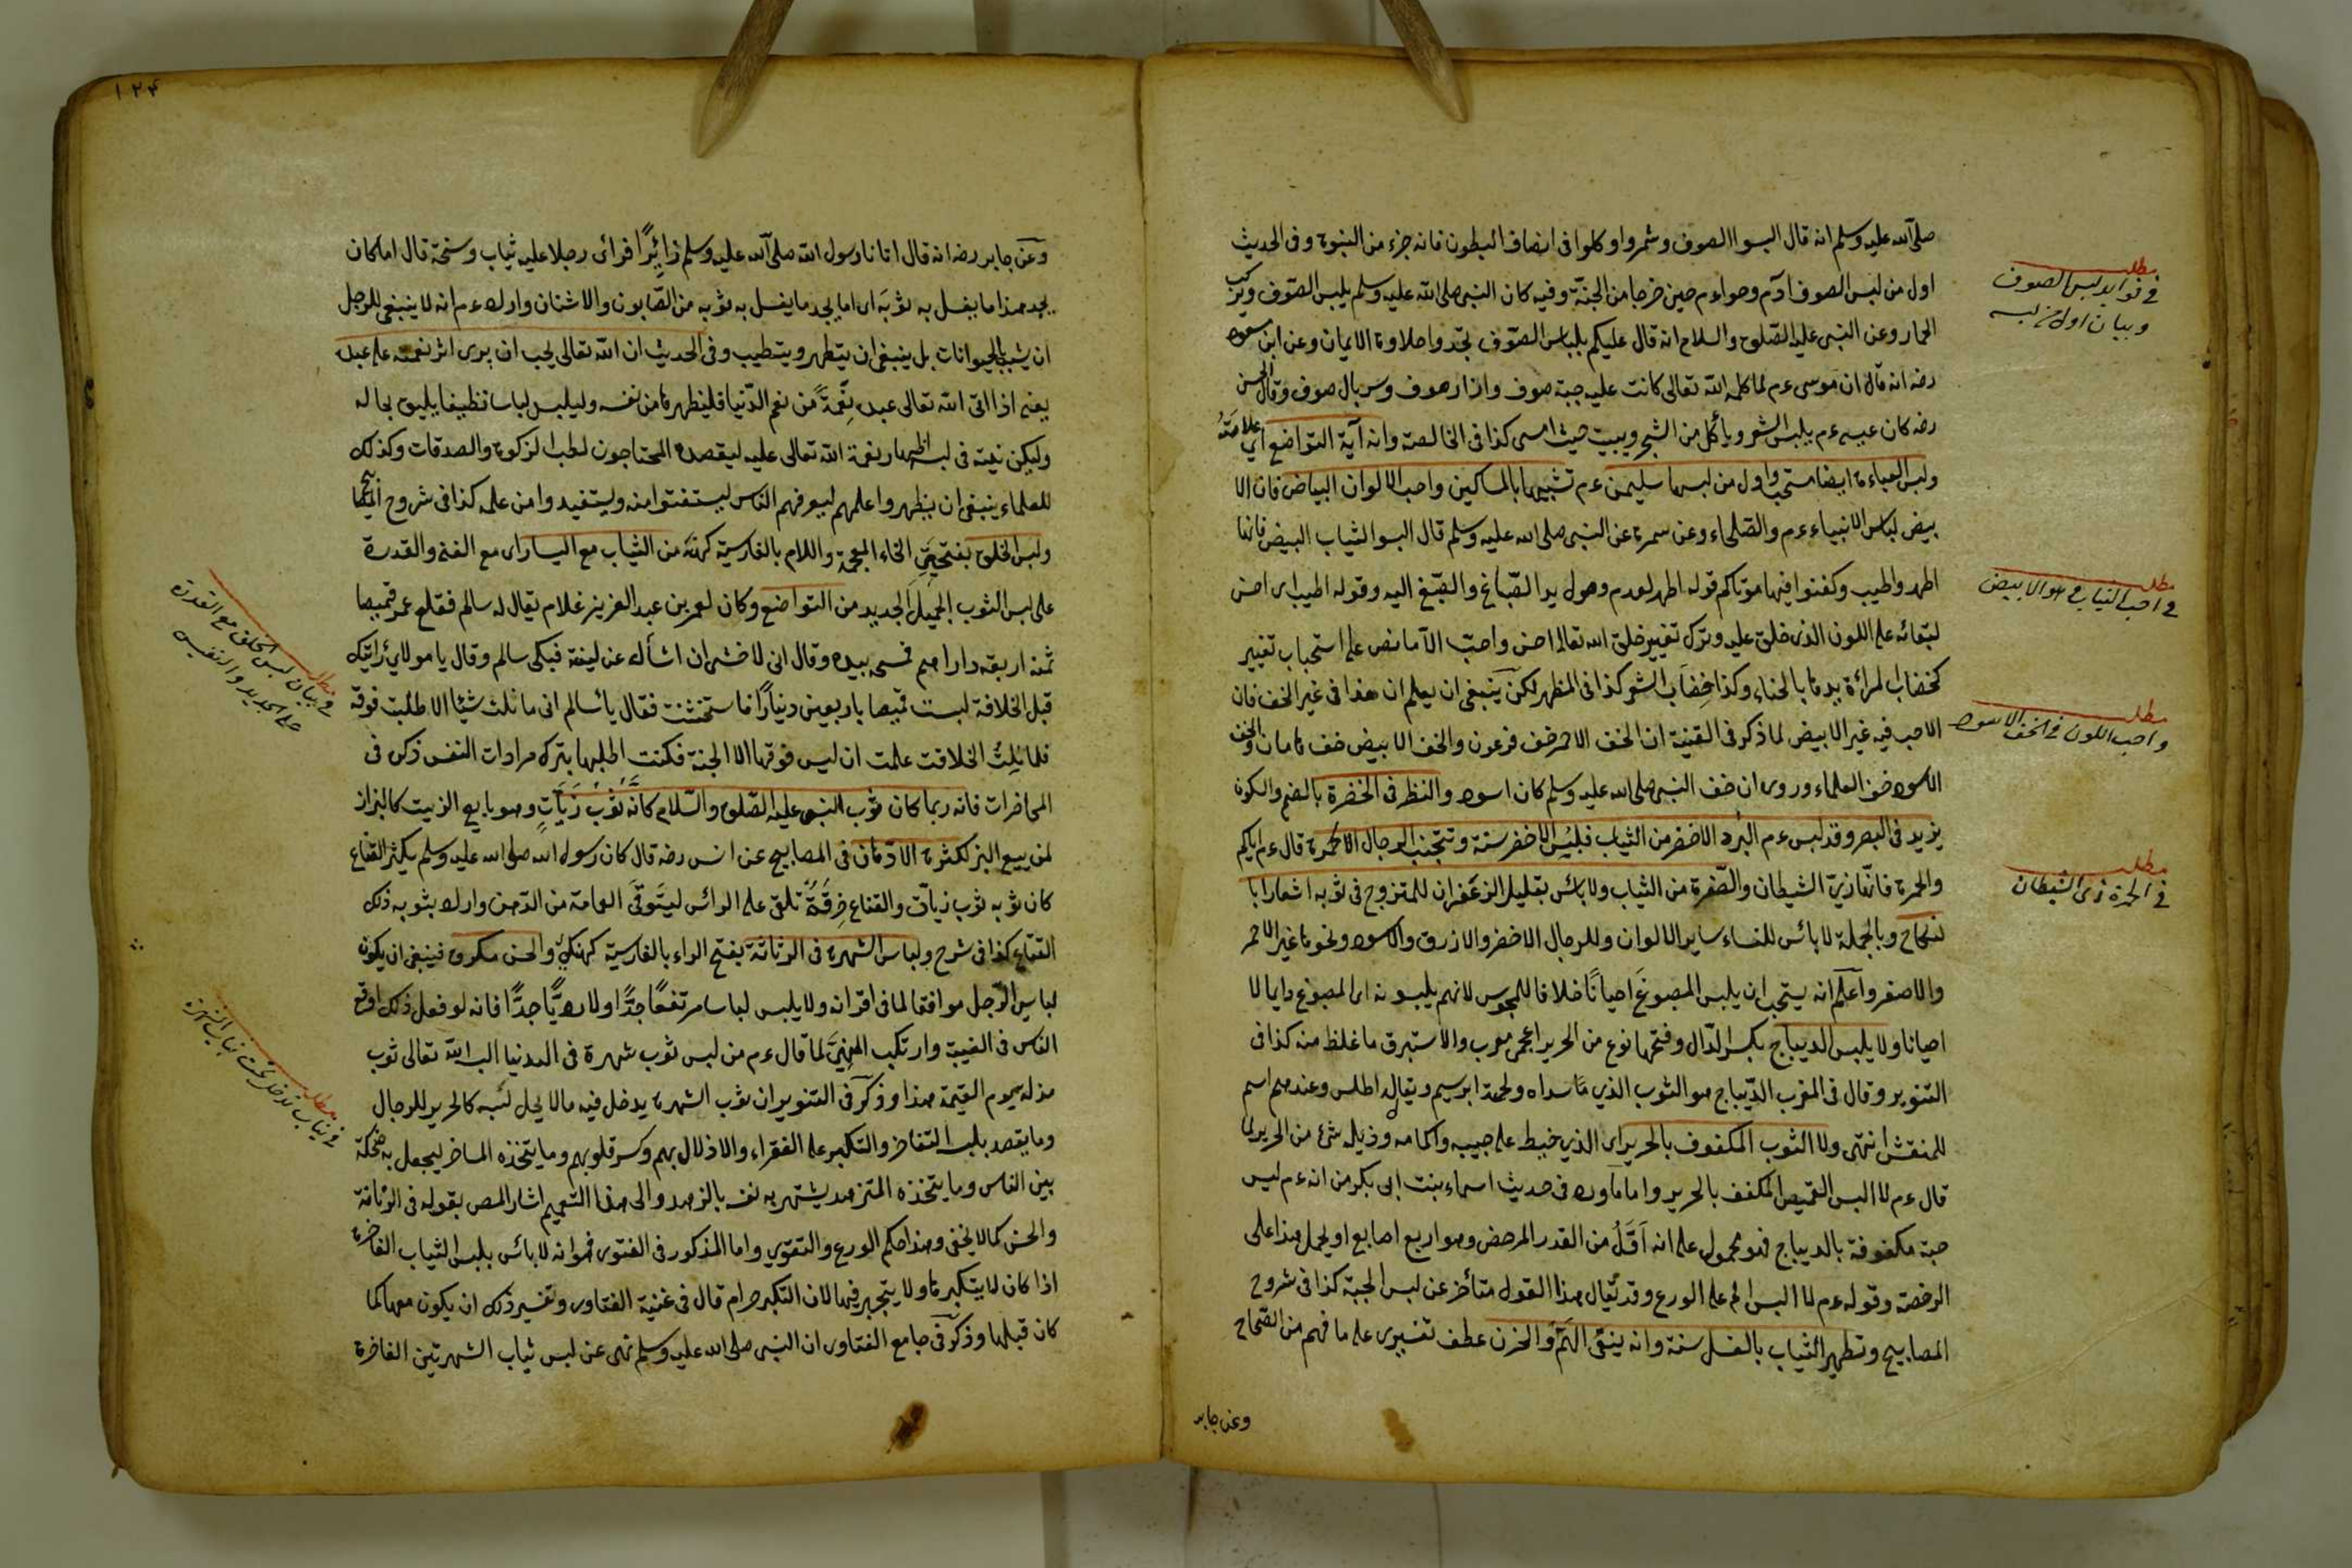 صلى الله عليه وسلم انه قال البسوا الصوف وشمروا وكلوا فى انصاف البطون فانه جزء من النبوة وفى الحديث
اول من لبس الصوف آدم وحواء م حين خرجا من الجنة وفيه كان النبى صلى الله عليه وسلم يلبس الصوف ويركب
الحمار وعن النبى عليه الصلوة والسلام انه قال عليكم بلباس الصوف تجدوا حلاوة الايمان وعن ابن مسعود
رضه انه قال ان موسى ءم لما كلمه الله تعالى كانت عليه جبة صوف وازار صوف وسربال صوف وقال الحسن
رضه كان عيسى ءم يلبس الشعر ويأكل من الشجر ويبيت حيث امسى كذا فى الخالصة وانه آية التواضع اى علامته
ولبس العباءة ايضا مستحب واول من لبسها سليمن ءم تشبيها بالمساكين واحب الالوان البياض فان الا
بيض لباس الانبياء ءم والصلحاء وعن سمرة عن النبى صلى الله عليه وسلم قال البسوا الثياب البيض فانها
اطهر واطيب وكفنوا فيها موتاكم قوله اطهر لعدم وصول يد الصباغ والصبغ اليه وقوله اطيب اى احسن
لبقائه على اللون الذى خلق عليه وترك تغيير خلق الله تعالى احسن واحب الا ما نص على استحباب تغيير
كخضاب المرأة يدها بالحناء وكذا خضاب الشعر كذا فى المظهر لكن ينبغى ان يعلم ان هذا فى غير الخف فان
الاحب فيه غير الابيض لما ذكر فى القنية ان الخف الاحمر خف فرعون والخف الابيض خف هامان والخف
الاسود خف العلماء وروى ان خف النبى صلى الله عليه وسلم كان اسود والنظر فى الخضرة بالضم والسكون
يزيد فى البصر وقد لبس ءم البرد الاخضر من الثياب فلبس الاخضر سنة وتجتنب الرجال الحمرة قال ءم اياكم
والحمرة فانها زى الشيطان والصفرة من الثياب ولا بائس بقليل الزعفران للمتزوج فى ثوبه اشعارا با
لنكاح وبالجملة لا بائس للنساء ساير الالوان وللرجال الاخضر والازرق والاسود ونحوها غير الاحمر
والاصفر واعلم انه يستحب ان يلبس المصبوغ احيانا خلافا للمجوس لانهم يلبسونه اى المصبوغ دايما لا
احيانا ولا يلبس الديباج بكسر الدال وفتحها نوع من الحرير اعجمى معرب والاستبرق ما غلظ منه كذا فى
التنوير وقال فى المغرب الديباج هو الثوب الذى سداه ولحمته ابريسم ويقال له اطلس وعندهم اسم
للمنقش انتهى ولا الثوب المكفوف بالحرير اى الذى خيط على جيبه واكمامه وذيله شئ من الحرير لما
قال ءم لا البس القميص المكفف بالحرير واما ما ورد فى حديث اسماء بنت ابى بكر من انه ءم لبس
جبة مكفوفة بالديباج فهو محمول على انه اقل من القدر المرخص وهو اربع اصابع او يحمل هذا على
الرخصة وقوله ءم لا البس الخ على الورع وقد يقال هذا القول متأخر عن لبس الجبة كذا فى شروح
المصابيح وتطهير الثياب بالغسل سنة وانه ينفى الهم والحزن عطف تفسيرى على ما فهم من الصحاح
وعن جابر
مطلب
فى فوايد لبس الصوف
وبيان اول من لبسه
مطلب
فى احب الثياب هو الابيض
مطلب
واحب اللون فى الخف الاسود
مطلب
فى الحمرة زى الشيطان
١٢٤
وعن جابر رضه انه قال اتانا رسول الله صلى الله عليه وسلم زائرا فرأى رجلا عليه ثياب وسخة قال اما كان
يجد هذا ما يغسل به ثوبه اى اما يجد ما يغسل به ثوبه من الصابون والاشنان واراد ءم انه لا ينبغى للرجل
ان يشبه الحيوانات بل ينبغى ان يتطهر ويتطيب وفى الحديث ان الله تعالى يحب ان يرى اثر نعمته على عبده
يعنى اذا اتى الله تعالى عبده نعمة من نعم الدنيا فليظهرها من نفسه وليلبس لباسا نظيفا يليق بحاله
وليكن نيته فى لبسه اظهار نعمة الله تعالى عليه ليقصده المحتاجون لطلب الزكوة والصدقات وكذلك
للعلماء ينبغى ان يظهروا علمهم ليعرفهم الناس ليستفتوا منه وليستفيدوا من علمه كذا فى شروح المصابيح
ولبس الخلق بفتحتى الخاء المعجمة واللام بالفارسية كهنه من الثياب مع اليسار اى مع الغنى والقدرة
على لبس الثوب الجميل الجديد من التواضع وكان لعمر بن عبد العزيز غلام يقال له سالم فقلع عمر قميصا
ثمنه اربعة دراهم فمسحه بيده وقال انى لاخشى ان اسأل عن لينته فبكى سالم وقال يا مولائى رأيتك
قبل الخلافة لبست قميصا باربعين دينارا فاستخشنت فقال يا سالم انى ما نلت شيئا الا طلبت فوقه
فلما نلت الخلافت علمت ان ليس فوقها الا الجنة فكنت اطلبها بترك مرادات النفس ذكره فى
المحاضرات فانه ربما كان ثوب النبى عليه الصلوة والسلام كانه ثوب زيات وهو بايع الزيت كالبزاز
لمن يبيع البز لكثرة الادهان فى المصابيح عن انس رضه قال كان رسول الله صلى الله عليه وسلم يكثر القناع
كان ثوبه ثوب زيات والقناع خرقة تلقى على الرائس ليتوقى العمامة من الدهن واراد بثوبه ذلك
القناع كذا فى شرح ولباس الشهرة فى الرثاثة بفتح الراء بالفارسية كهنكى والحسن مكروه فينبغى ان يكون
لباس الرجل موافقا لما فى اقرانه ولا يلبس لباسا مرتفعا جدا ولا رديا جدا فانه لو فعل ذلك اوقع
الناس فى الغيبة وارتكب المنهى لما قال ءم من لبس ثوب شهرة فى الدنيا البسه الله تعالى ثوب
مذلة يوم القيمة هذا وذكر فى التنوير ان ثوب الشهرة يدخل فيه ما لا يحل لبسه كالحرير للرجال
وما يقصد بلبسه التفاخر والتكبر على الفقراء والاذلال بهم وكسر قلوبهم وما يتخذه المساخر ليجعل به ضحكة
بين الناس وما يتخذه المتزهد يشتهر به نفسه بالزهد والى هذا التعميم اشار المص بقوله فى الرثاثة
والحسن كما لا يخفى وهذا حكم الورع والتقوى واما المذكور فى الفتوى فهو انه لا بائس بلبس الثياب الفاخرة
اذا كان لا يتكبر بها ولا يتجبر فيها لان التكبر حرام قال فى غنية الفتاوى وتفسير ذلك ان يكون معها كما
كان قبلها وذكر فى جامع الفتاوى ان النبى صلى الله عليه وسلم نهى عن لبس ثياب الشهرتين الفاخرة
مطلب
فى بيان لبس الخلق مع القدرة
على الجديد والنفيس
مطلب